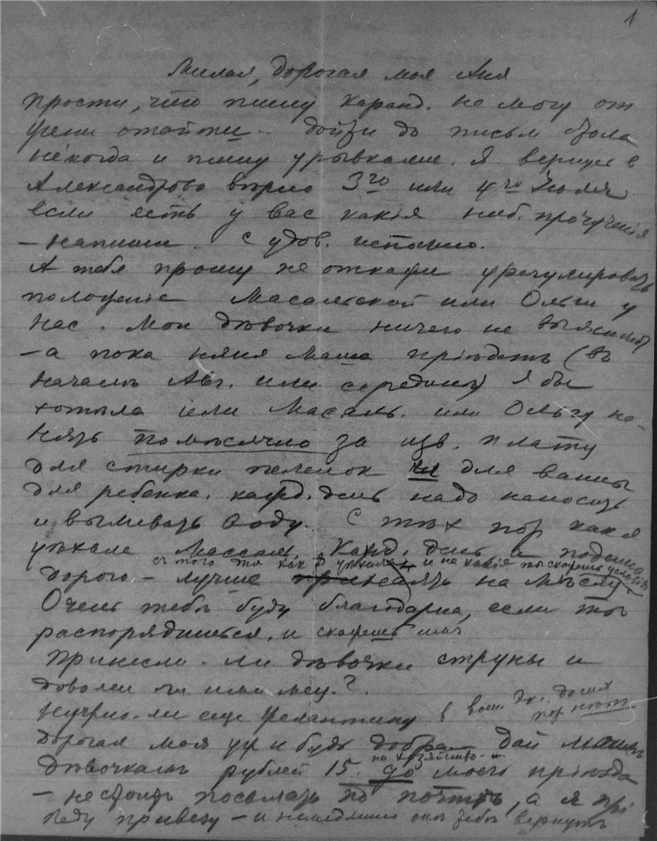 1
Милая, дорогая моя Аня
прости, что пишу каранд. не могу от
отойти дойти до письм стола
некогда и пишу урывками. Я вернусь в
Александрово верно 3го или 4го Июля
если есть у вас какія ниб. порученія
– напиши. с удов. исполню.
А тебя прошу не откажи урегулировать
положеніе Масальской или Ольги у
нас. Мои дѣвочки ничего не
– а пока няня Маша пріѣдетъ (въ
началѣ Авг. или серединѣ) я бы
хотѣла или Масаль. или Ольгу на-
нять помѣсячно за изв. плату
для стирки пеленок и для ванны
для ребенка. кажд. день надо наносить
и выливать воду. С тѣх пор какъ
уѣхала Кажд. день и
съ того дня как я уѣхала и на какія условія
дорого – лучше нанять на мѣсяц.
Очень тебѣ буду благодарна, если ты
распорядишься, и скажешь имъ
принесли-ли дѣвочки струны и
довольны ли ими
Нужно-ли еще
дорогая моя уж и будь добра дай моимъ
на хозяйство
дѣвочкамъ рублей 15 до моего пріѣзда
– не стоитъ посылать по почтѣ, а я прі
ѣду привезу – и немедленно тебѣ вернутъ